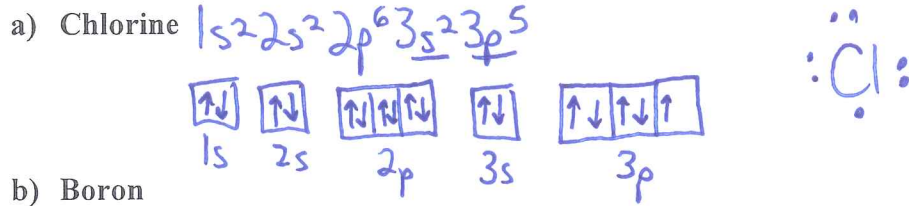 a) Chlorine 1s²2s²2p⁶3s²3p⁵
:Cl:
↑↓ ↑↓ ↑↓ ↑↓ ↑↓ ↑↓ ↑↓ ↑↓ ↑
1s 2s 2p 3s 3p
b) Boron